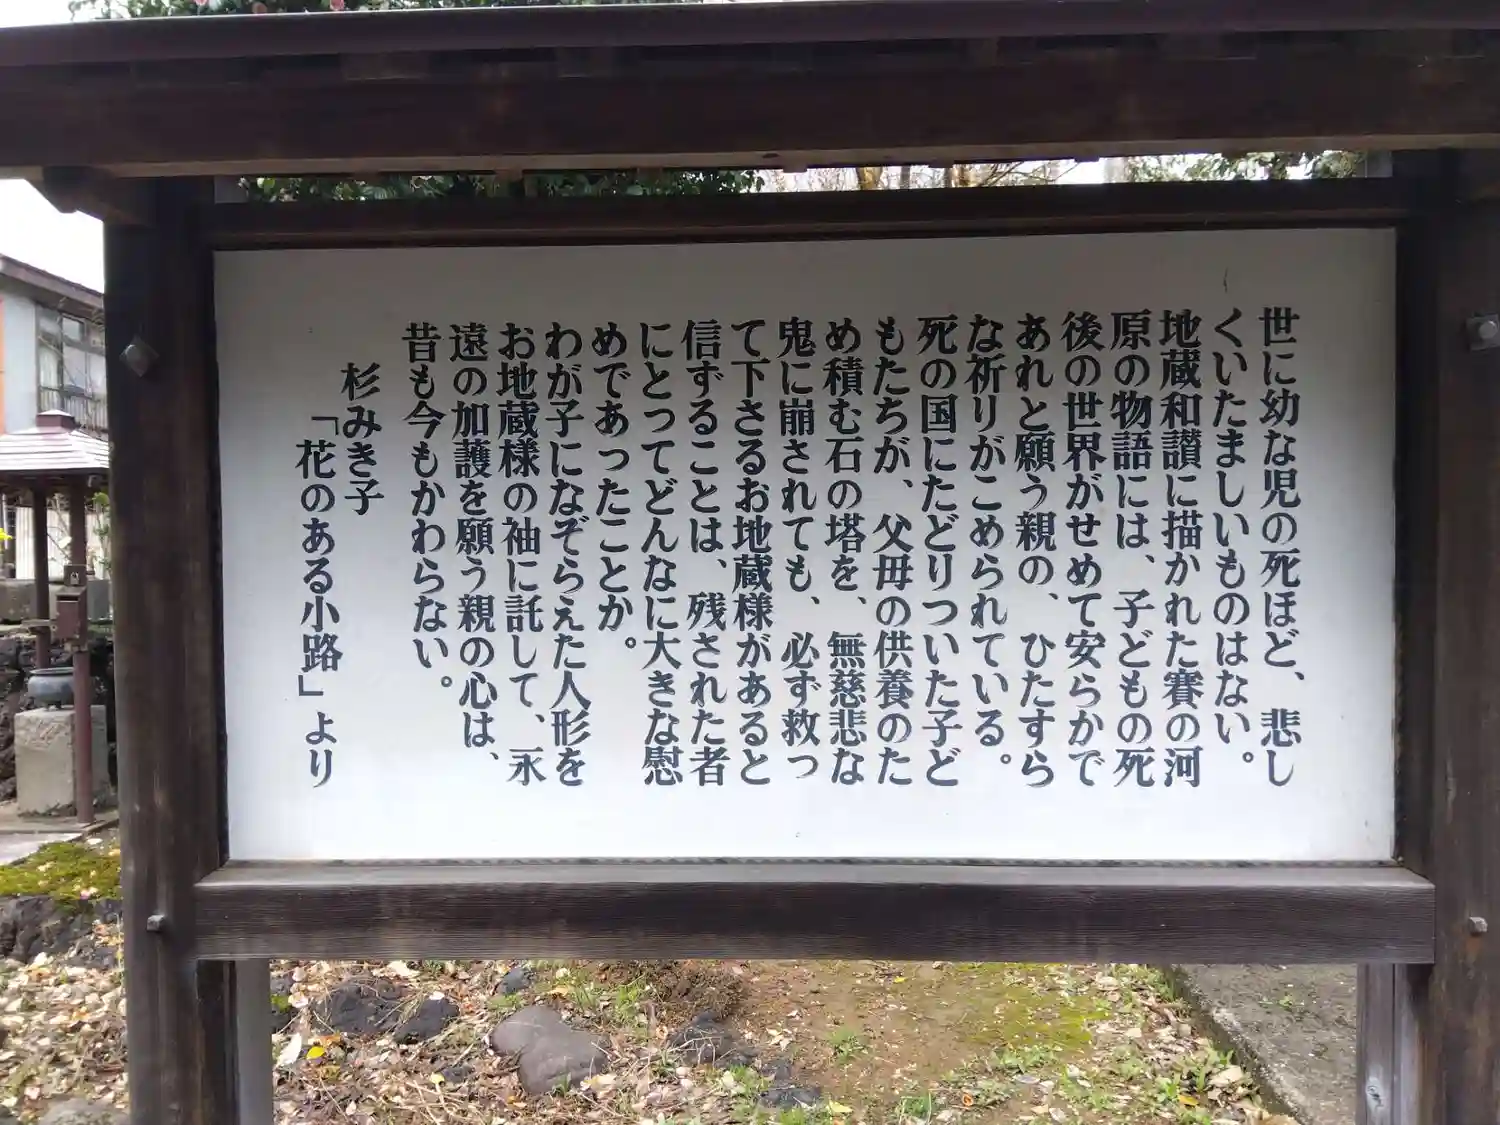 世に幼な児の死ほど、悲し
くいたましいものはない。
地蔵和讃に描かれた賽の河
原の物語には、子どもの死
後の世界がせめて安らかで
あれと願う親の、ひたすら
な祈りがこめられている。
死の国にたどりついた子ど
もたちが、父母の供養のた
め積む石の塔を、無慈悲な
鬼に崩されても、必ず救っ
て下さるお地蔵様があると
信ずることは、残された者
にとってどんなに大きな慰
めであったことか。
わが子になぞらえた人形を
お地蔵様の袖に託して、永
遠の加護を願う親の心は、
昔も今もかわらない。
杉みき子
「花のある小路」より